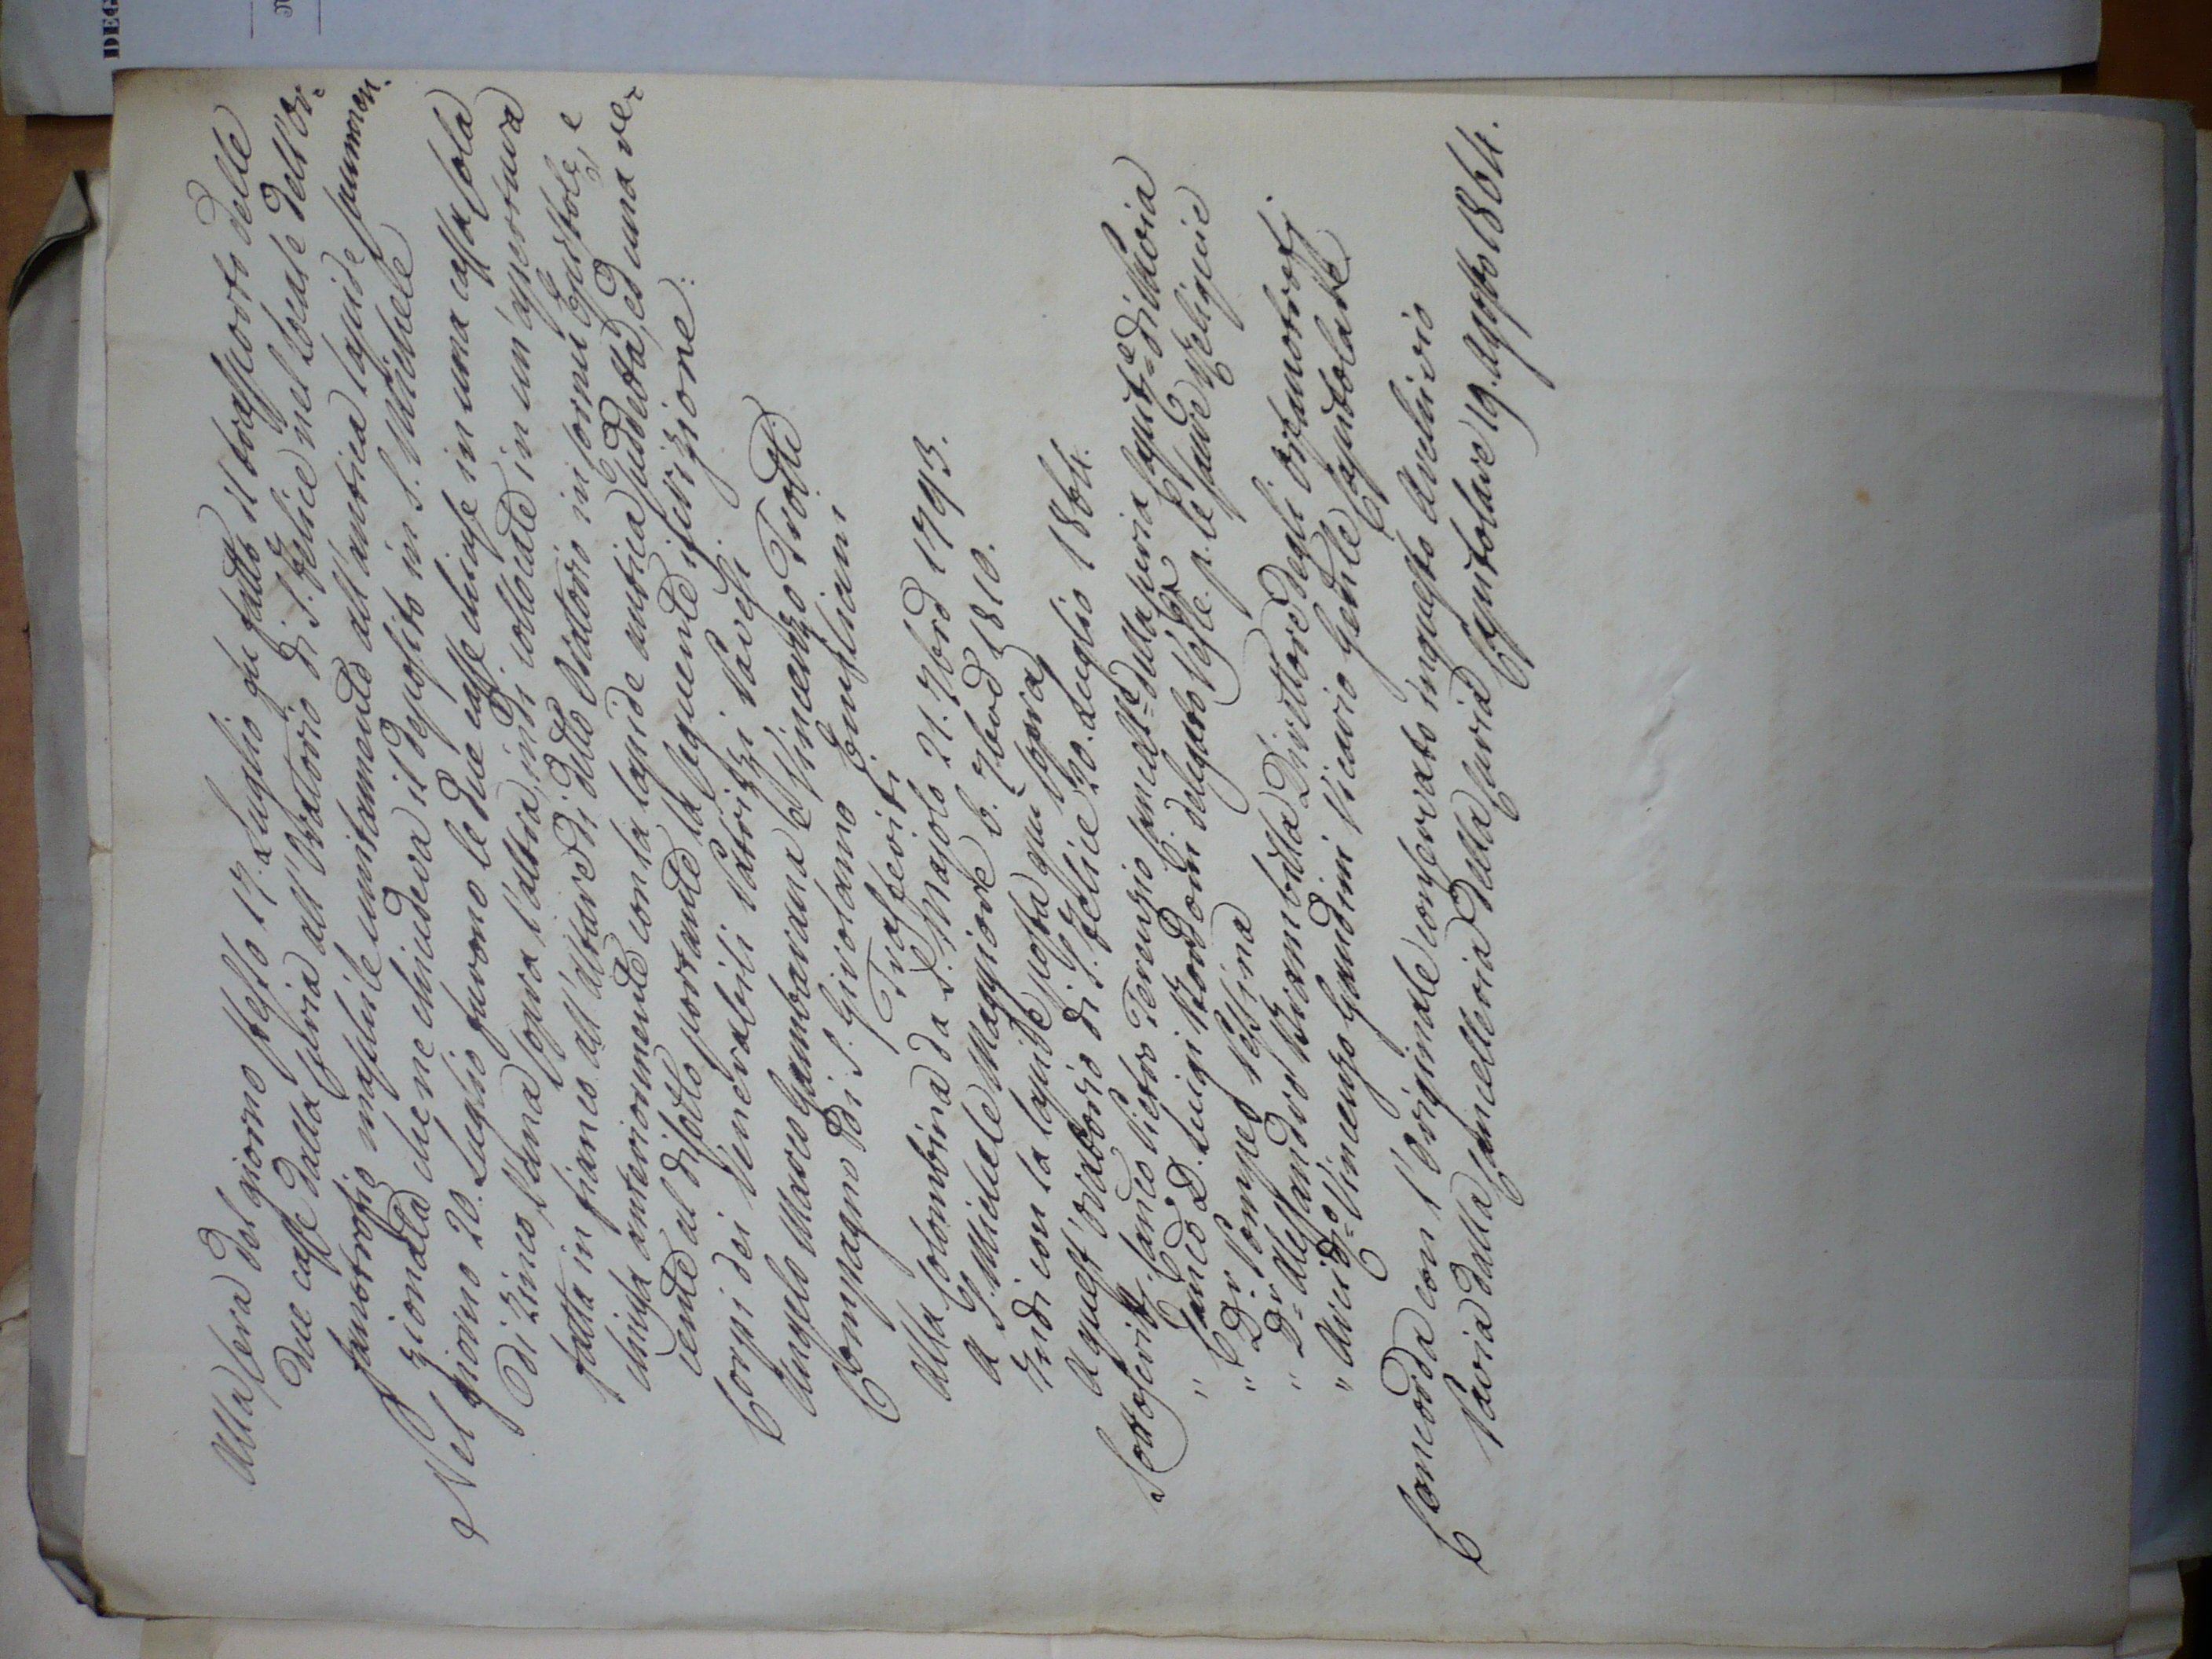 Alla sera del giorno stesso 17. Luglio fù fatto il trasporto delle
due casse dalla Curia all'Oratorio di S. Felice nel Locale dell'Or-
fanotrofio maschile unitamente all'antica lapide summen-
zionata che ne chiudeva il deposito in S. Michele
Nel giorno 20. Luglio furono le due casse chiuse in una cassa sola
di Zinco, l'una sopra l'altra, indi collocate in un'apertura
fatta in fianco all'altare di detto Oratorio in cornu Epistole, e
chiusa anteriormente con la lapide antica suddetta, ed una re-
cente al disotto portante la seguente iscrizione:
Corpi dei Venerabili Patrizi Pavesi
Angelo Marco Gambarana e Vincenzo Trotti
Compagni di S. Girolamo Emiliani
Trasferiti
Alla Colombina da S. Majolo 21. 7brê 1793.
a S. Michele Maggiore 6. 7brê 1810.
Indi con la lapide posta qui sopra
a quest'Oratorio di S. Felice 20. Luglio 1864.
Sottoscritti Canco Pietro Terenzio Cancell.e della Curia Capit.e di Pavia
" Canco D. Luigi delegato Vesc.e p. le sacre Reliquie
" Dr Pompeo
" Dr Alessandro Brambilla Direttore degli Orfanotrofj
" Arcid.o Vincenzo Gandini Vicario Gen.le Capitolare
Concorda con l'originale conservato in questo Archivio
Pavia dalla Cancelleria della Curia Capitolare 19. Agosto 1864.
DEG